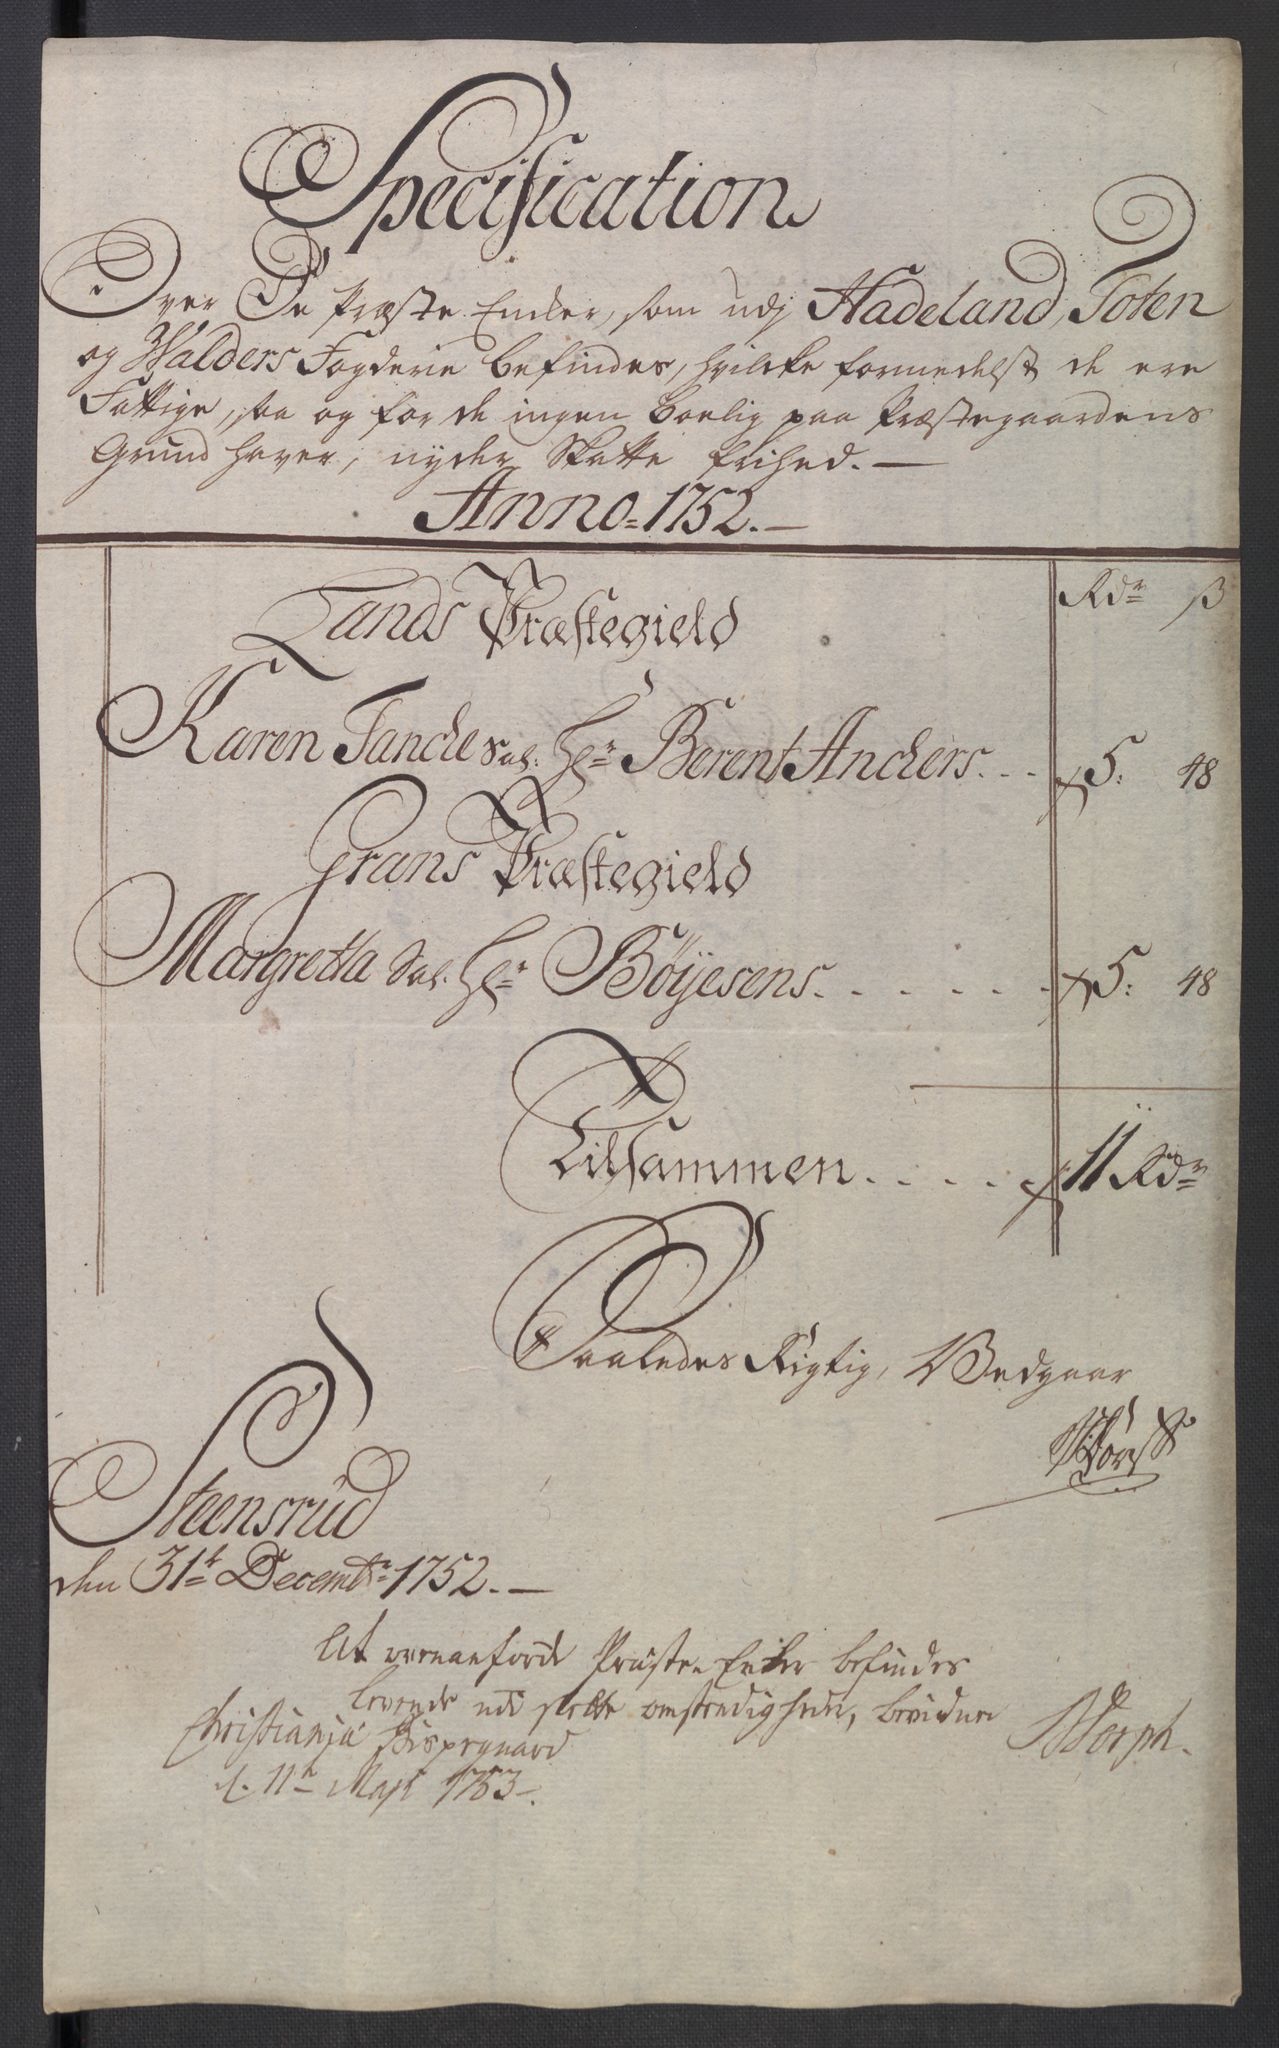 Specification
Over De Præste Encker, som udj Hadeland, Toten
og Walders Fogderie befindes, hvilcke formedelst de ere
Fattige, saa og for de ingen boelig paa Præstegaardens
Grund haver, nyder Skatte frihed. —
Anno = 1752. —
Rdr ß
Lands Præstegield
Karen Tanche Sal: Hr Berent Anchers . . . 5: 48
Grans Præstegield
Margretha Sal. Hr Bøyesens . . . . . . 5: 48
Tilsammen . . . . . 11 Rdr
Saaledes Rigtig, Vedgaar
Steensrud
den 31te Decembr 1752. —
At ovenanførde Præste Encker befindes
levende udi slette omstendigheder, bevidner
Christiania Bispegaard
d. 11te Maji 1753.